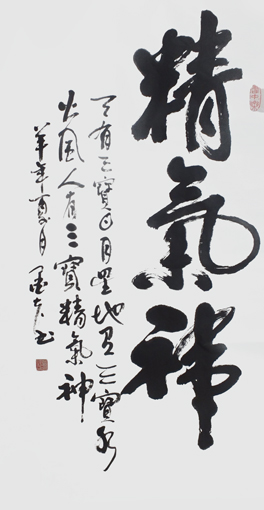 精氣神
天有三寶日月星地有三寶水
火風人有三寶精氣神
羊年夏月 墨夫書